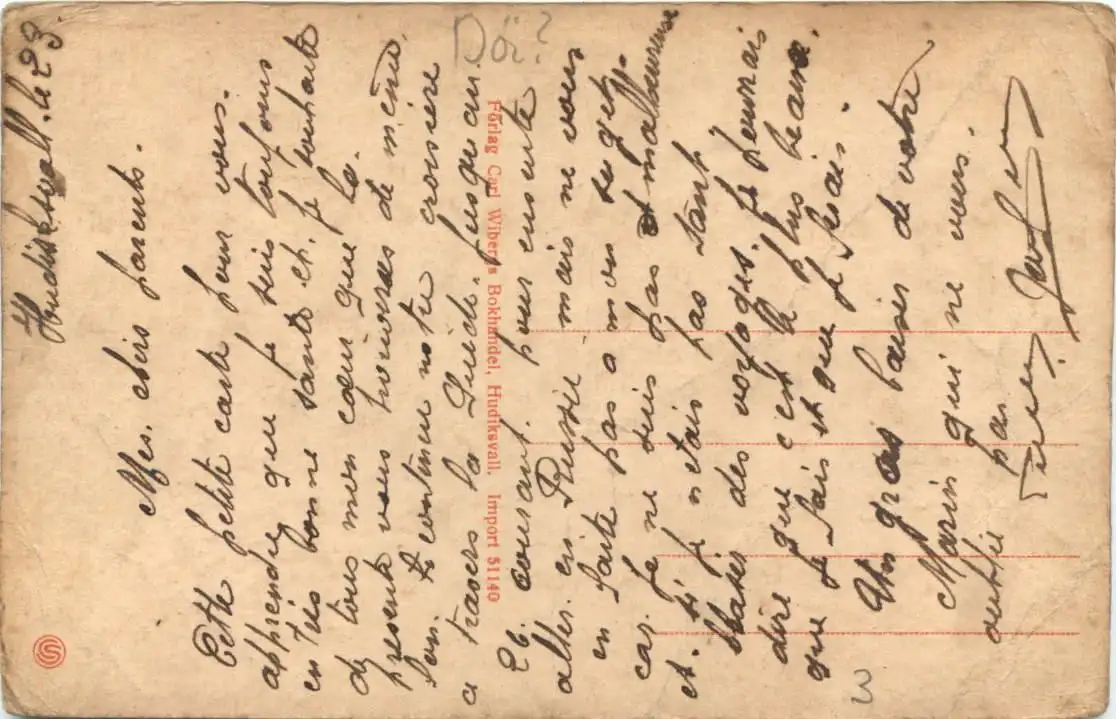 Hudiksvall. le 23.
Mes. chers parents.
Cette petite carte pour vous.
apprendre que je suis toujours
en très bonne santé et. je souhaite
de tous mon cœur que la.
présente vous trouveras de même.
continue notre croisière
a travers la Suède. jusque au.
26. courant. pour ensuite
aller. en Russie mais ne vous
en faite pas a mon suget.
car. je ne suis pas malheureuse
et. si je n'etais pas tant
blaser des voyages. je pourrais
dire que c'est la plus beau.
que je fais et que je ferais.
Un gros baiser de votre
Marin qui ne vous.
oublie pas
Doi?
Förlag Carl Wibergs Bokhandel, Hudiksvall. Import 51140